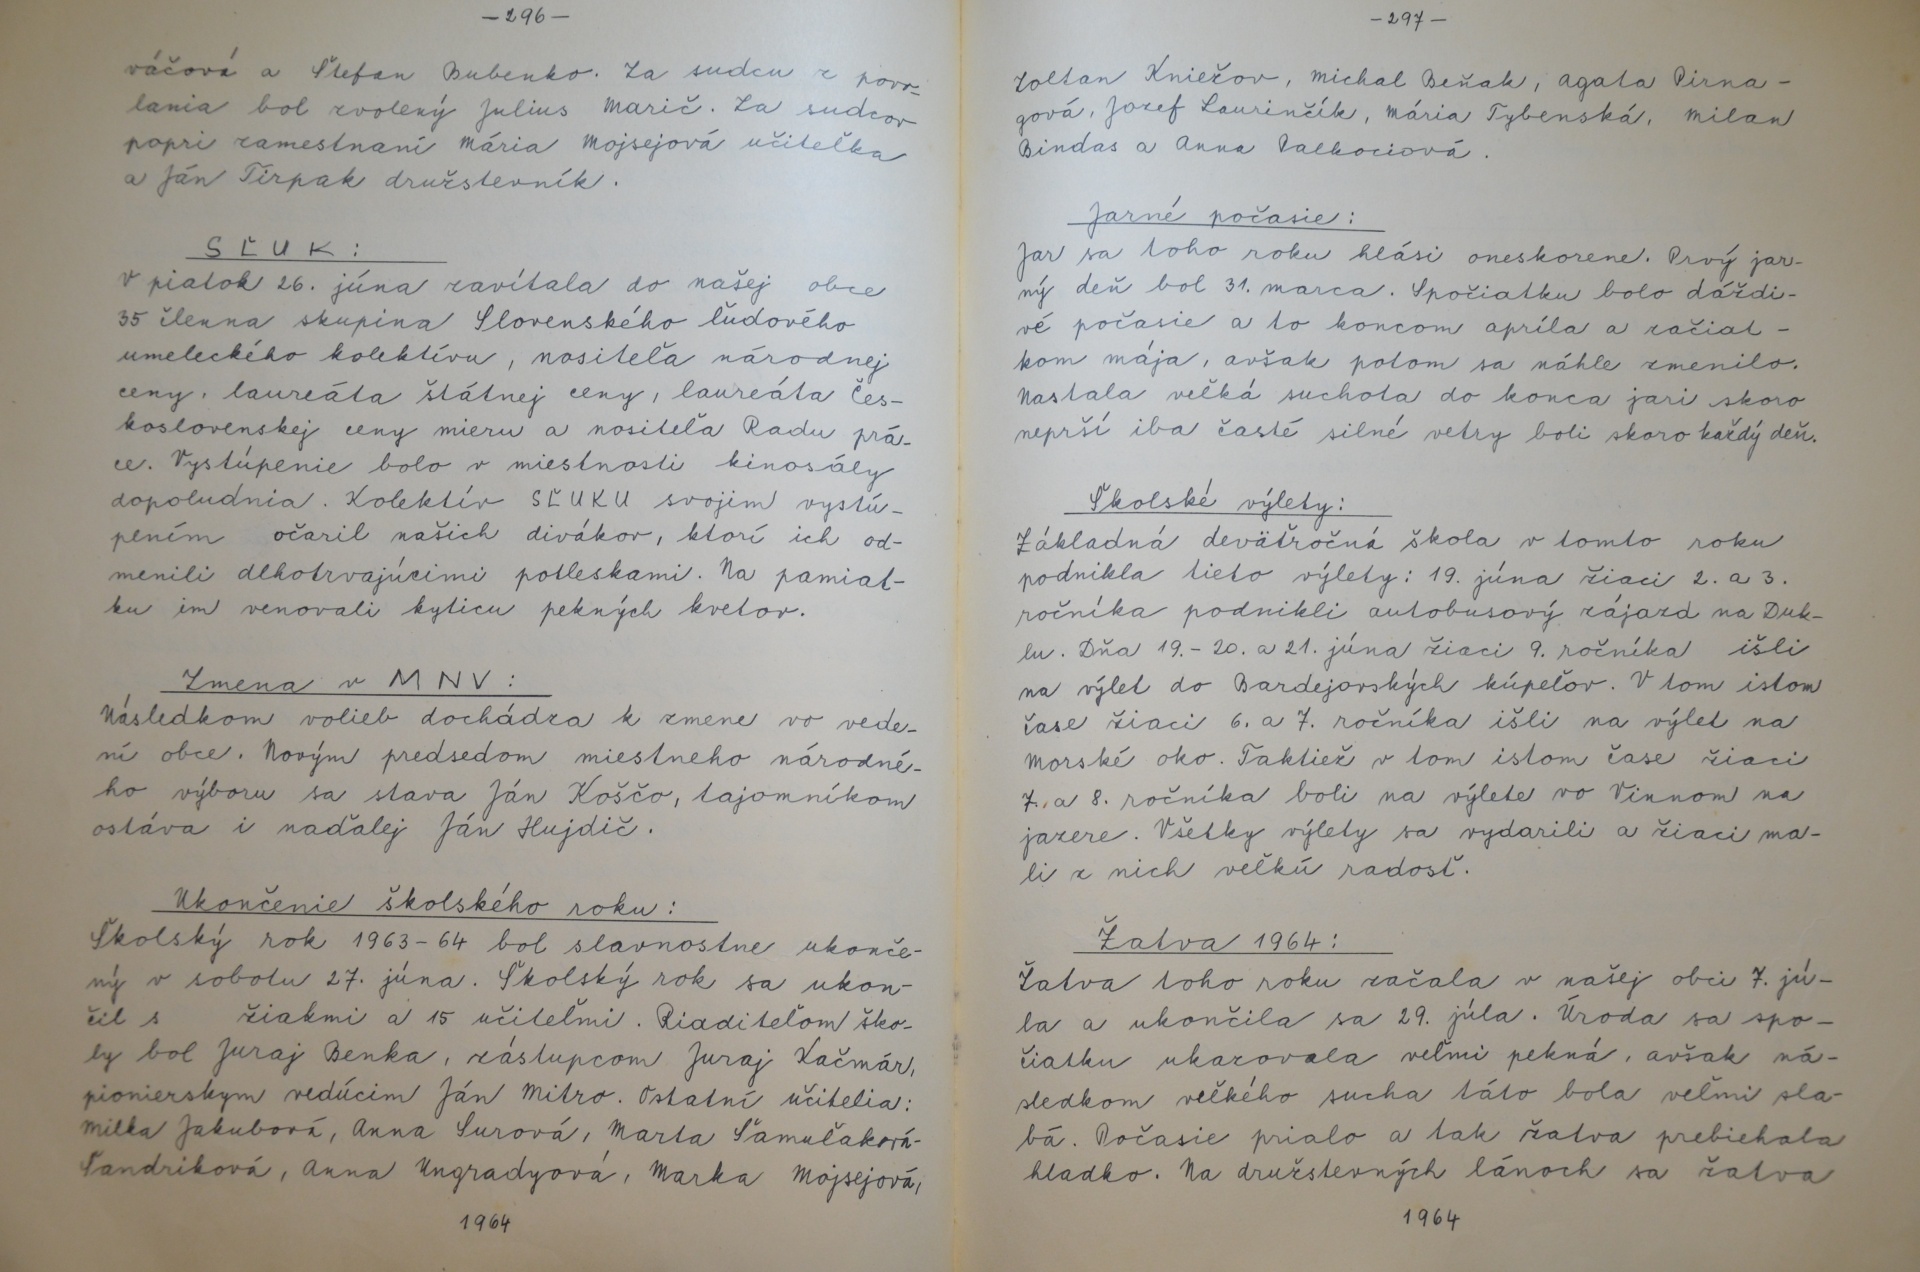 —296—
váčová a Štefan Bubenko. Za sudcu z povo-
lania bol zvolený Július Marič. Za sudcov
popri zamestnaní Mária Mojsejová učiteľka
a Ján Tirpak družstevník.
SĽUK:
V piatok 26. júna zavítala do našej obce
35 členna skupina Slovenského ľudového
umeleckého kolektívu, nositeľa národnej
ceny, laureáta štátnej ceny, laureáta Čes-
koslovenskej ceny mieru a nositeľa Radu prá-
ce. Vystúpenie bolo v miestnosti kinosály
dopoludnia. Kolektív SĽUKU svojim vystú-
pením očaril našich divákov, ktorí ich od-
menili dlhotrvajúcimi potleskami. Na pamiat-
ku im venovali kyticu pekných kvetov.
Zmena v MNV:
Následkom volieb dochádza k zmene vo vede-
ní obce. Novým predsedom miestneho národné-
ho výboru sa stava Ján Koščo, tajomníkom
ostáva i naďalej Ján Hujdič.
Ukončenie školského roku:
Školský rok 1963-64 bol slavnostne ukonče-
ný v sobotu 27. júna. Školský rok sa ukon-
čil s žiakmi a 15 učiteľmi. Riaditeľom ško-
ly bol Juraj Benka, zástupcom Juraj Kačmár,
pionierskym vedúcim Ján Mitro. Ostatní učitelia:
Milka Jakubová, Anna Surová, Marta Šamuľaková-
Šandriková, Anna Ungradyová, Marka Mojsejová,
1964
—297—
Zoltan Kniežov, Michal Beňak, Agata Pirna-
gová, Jozef Laurinčík, Mária Tybenská, Milan
Bindas a Anna Palkociová.
Jarné počasie:
Jar sa toho roku hlási oneskorene. Prvý jar-
ný deň bol 31. marca. Spočiatku bolo dáždi-
vé počasie a to koncom apríla a začiat-
kom mája, avšak potom sa náhle zmenilo.
Nastala veľká suchota do konca jari skoro
neprší iba časté silné vetry boli skoro každý deň.
Školské výlety:
Základná deväťročná škola v tomto roku
podnikla tieto výlety: 19. júna žiaci 2. a 3.
ročníka podnikli autobusový zájazd na Duk-
lu. Dňa 19.-20. a 21. júna žiaci 9. ročníka išli
na výlet do Bardejovských kúpeľov. V tom istom
čase žiaci 6. a 7. ročníka išli na výlet na
Morské oko. Taktiež v tom istom čase žiaci
7. a 8. ročníka boli na výlete vo Vinnom na
jazere. Všetky výlety sa vydarili a žiaci ma-
li z nich veľkú radosť.
Žatva 1964:
Žatva toho roku začala v našej obci 7. jú-
la a ukončila sa 29. júla. Úroda sa spo-
čiatku ukazovala veľmi pekná, avšak ná-
sledkom veľkého sucha táto bola veľmi sla-
bá. Počasie prialo a tak žatva prebiehala
hladko. Na družstevných lánoch sa žatva
1964